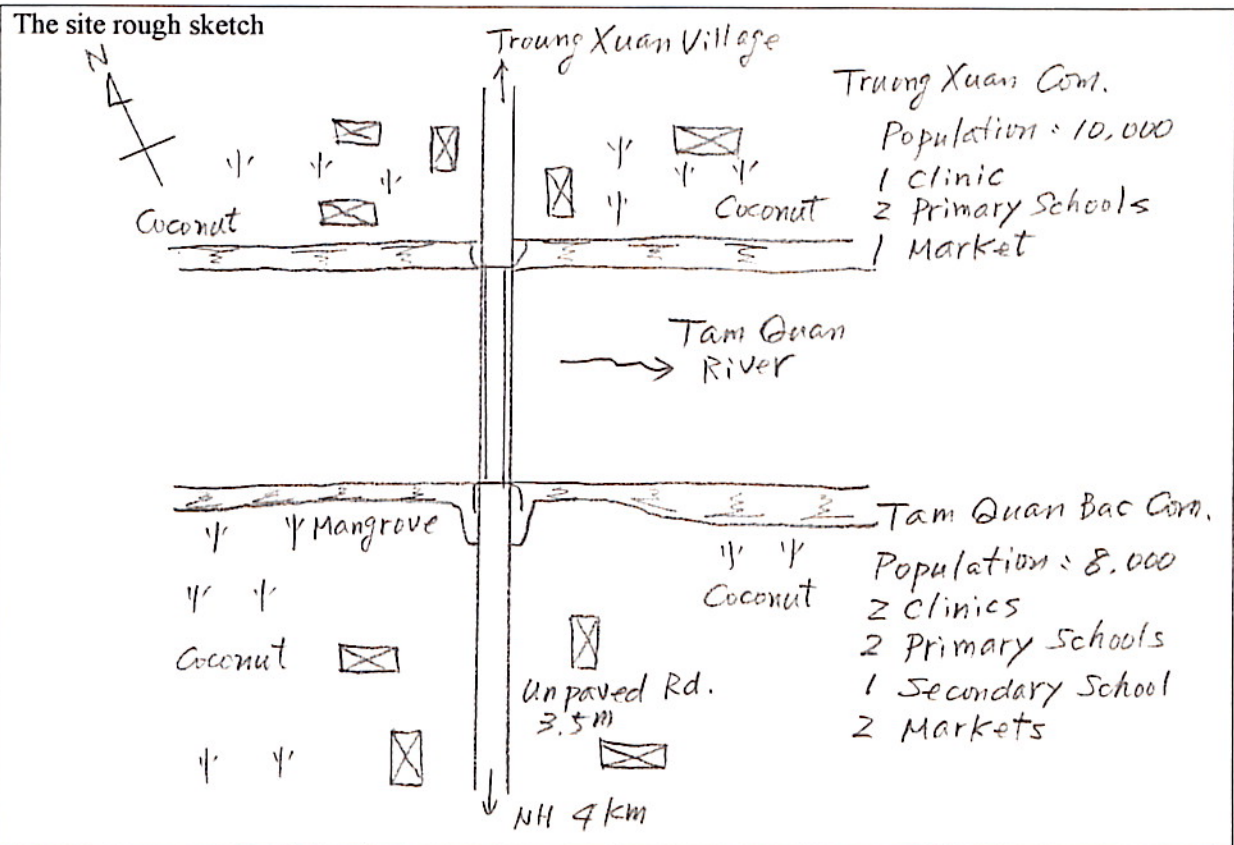 The site rough sketch
N
Troung Xuan Village
Truong Xuan Com.
Population : 10,000
1 Clinic
2 Primary Schools
1 Market
Coconut
Coconut
Tam Quan
River
Mangrove
Coconut
Tam Quan Bac Com.
Population : 8.000
2 Clinics
2 Primary Schools
1 Secondary School
2 Markets
Coconut
Unpaved Rd.
3.5m
NH 4 km